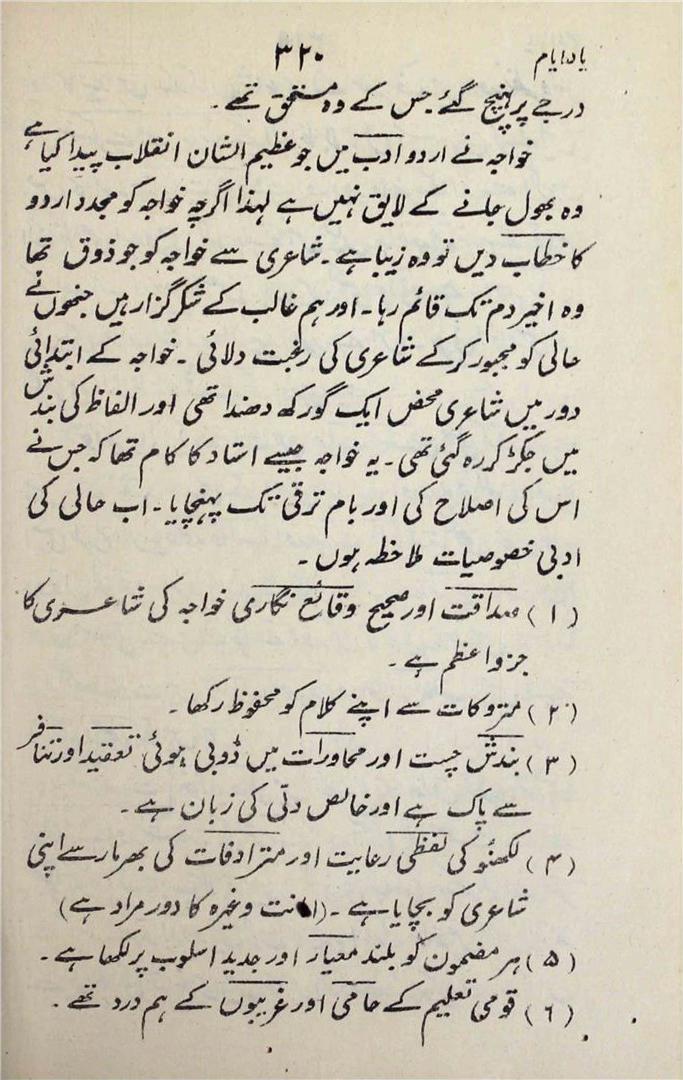 یادایام
۳۲۰
درجے پر پہنچ گئے جس کے وہ مستحق تھے۔
خواجہ نے اردو ادب میں جو عظیم الشان انقلاب پیدا کیا ہے
وہ بھول جانے کے لایق نہیں ہے لہذا اگرچہ خواجہ کو مجدد اردو
کا خطاب دیں تو وہ زیبا ہے۔ شاعری سے خواجہ کو جو ذوق تھا
وہ اخیر دم تک قائم رہا۔ اور ہم غالب کے شکر گزار ہیں جنہوں نے
حالی کو مجبور کرکے شاعری کی رغبت دلائی۔ خواجہ کے ابتدائی
دور میں شاعری محض ایک گورکھ دھندا تھی اور الفاظ کی بندش
میں جکڑ کر رہ گئی تھی۔ یہ خواجہ جیسے استاد کا کام تھا کہ جس نے
اس کی اصلاح کی اور بام ترقی تک پہنچایا۔ اب حالی کی
ادبی خصوصیات ملاحظہ ہوں۔
(۱) صداقت اور صحیح وقائع نگاری خواجہ کی شاعری کا
جزو اعظم ہے۔
(۲) متروکات سے اپنے کلام کو محفوظ رکھا۔
(۳) بندش چست اور محاورات میں ڈوبی ہوئی تعقید اور تنافر
سے پاک ہے اور خالص دلّی کی زبان ہے۔
(۴) لکھنؤ کی لفظی رعایت اور مترادفات کی بھرمار سے اپنی
شاعری کو بچایا ہے۔ (امانت وغیرہ کا دور مراد ہے)
(۵) ہر مضمون کو بلند معیار اور جدید اسلوب پر لکھا ہے۔
(۶) قومی تعلیم کے حامی اور غریبوں کے ہم درد تھے۔